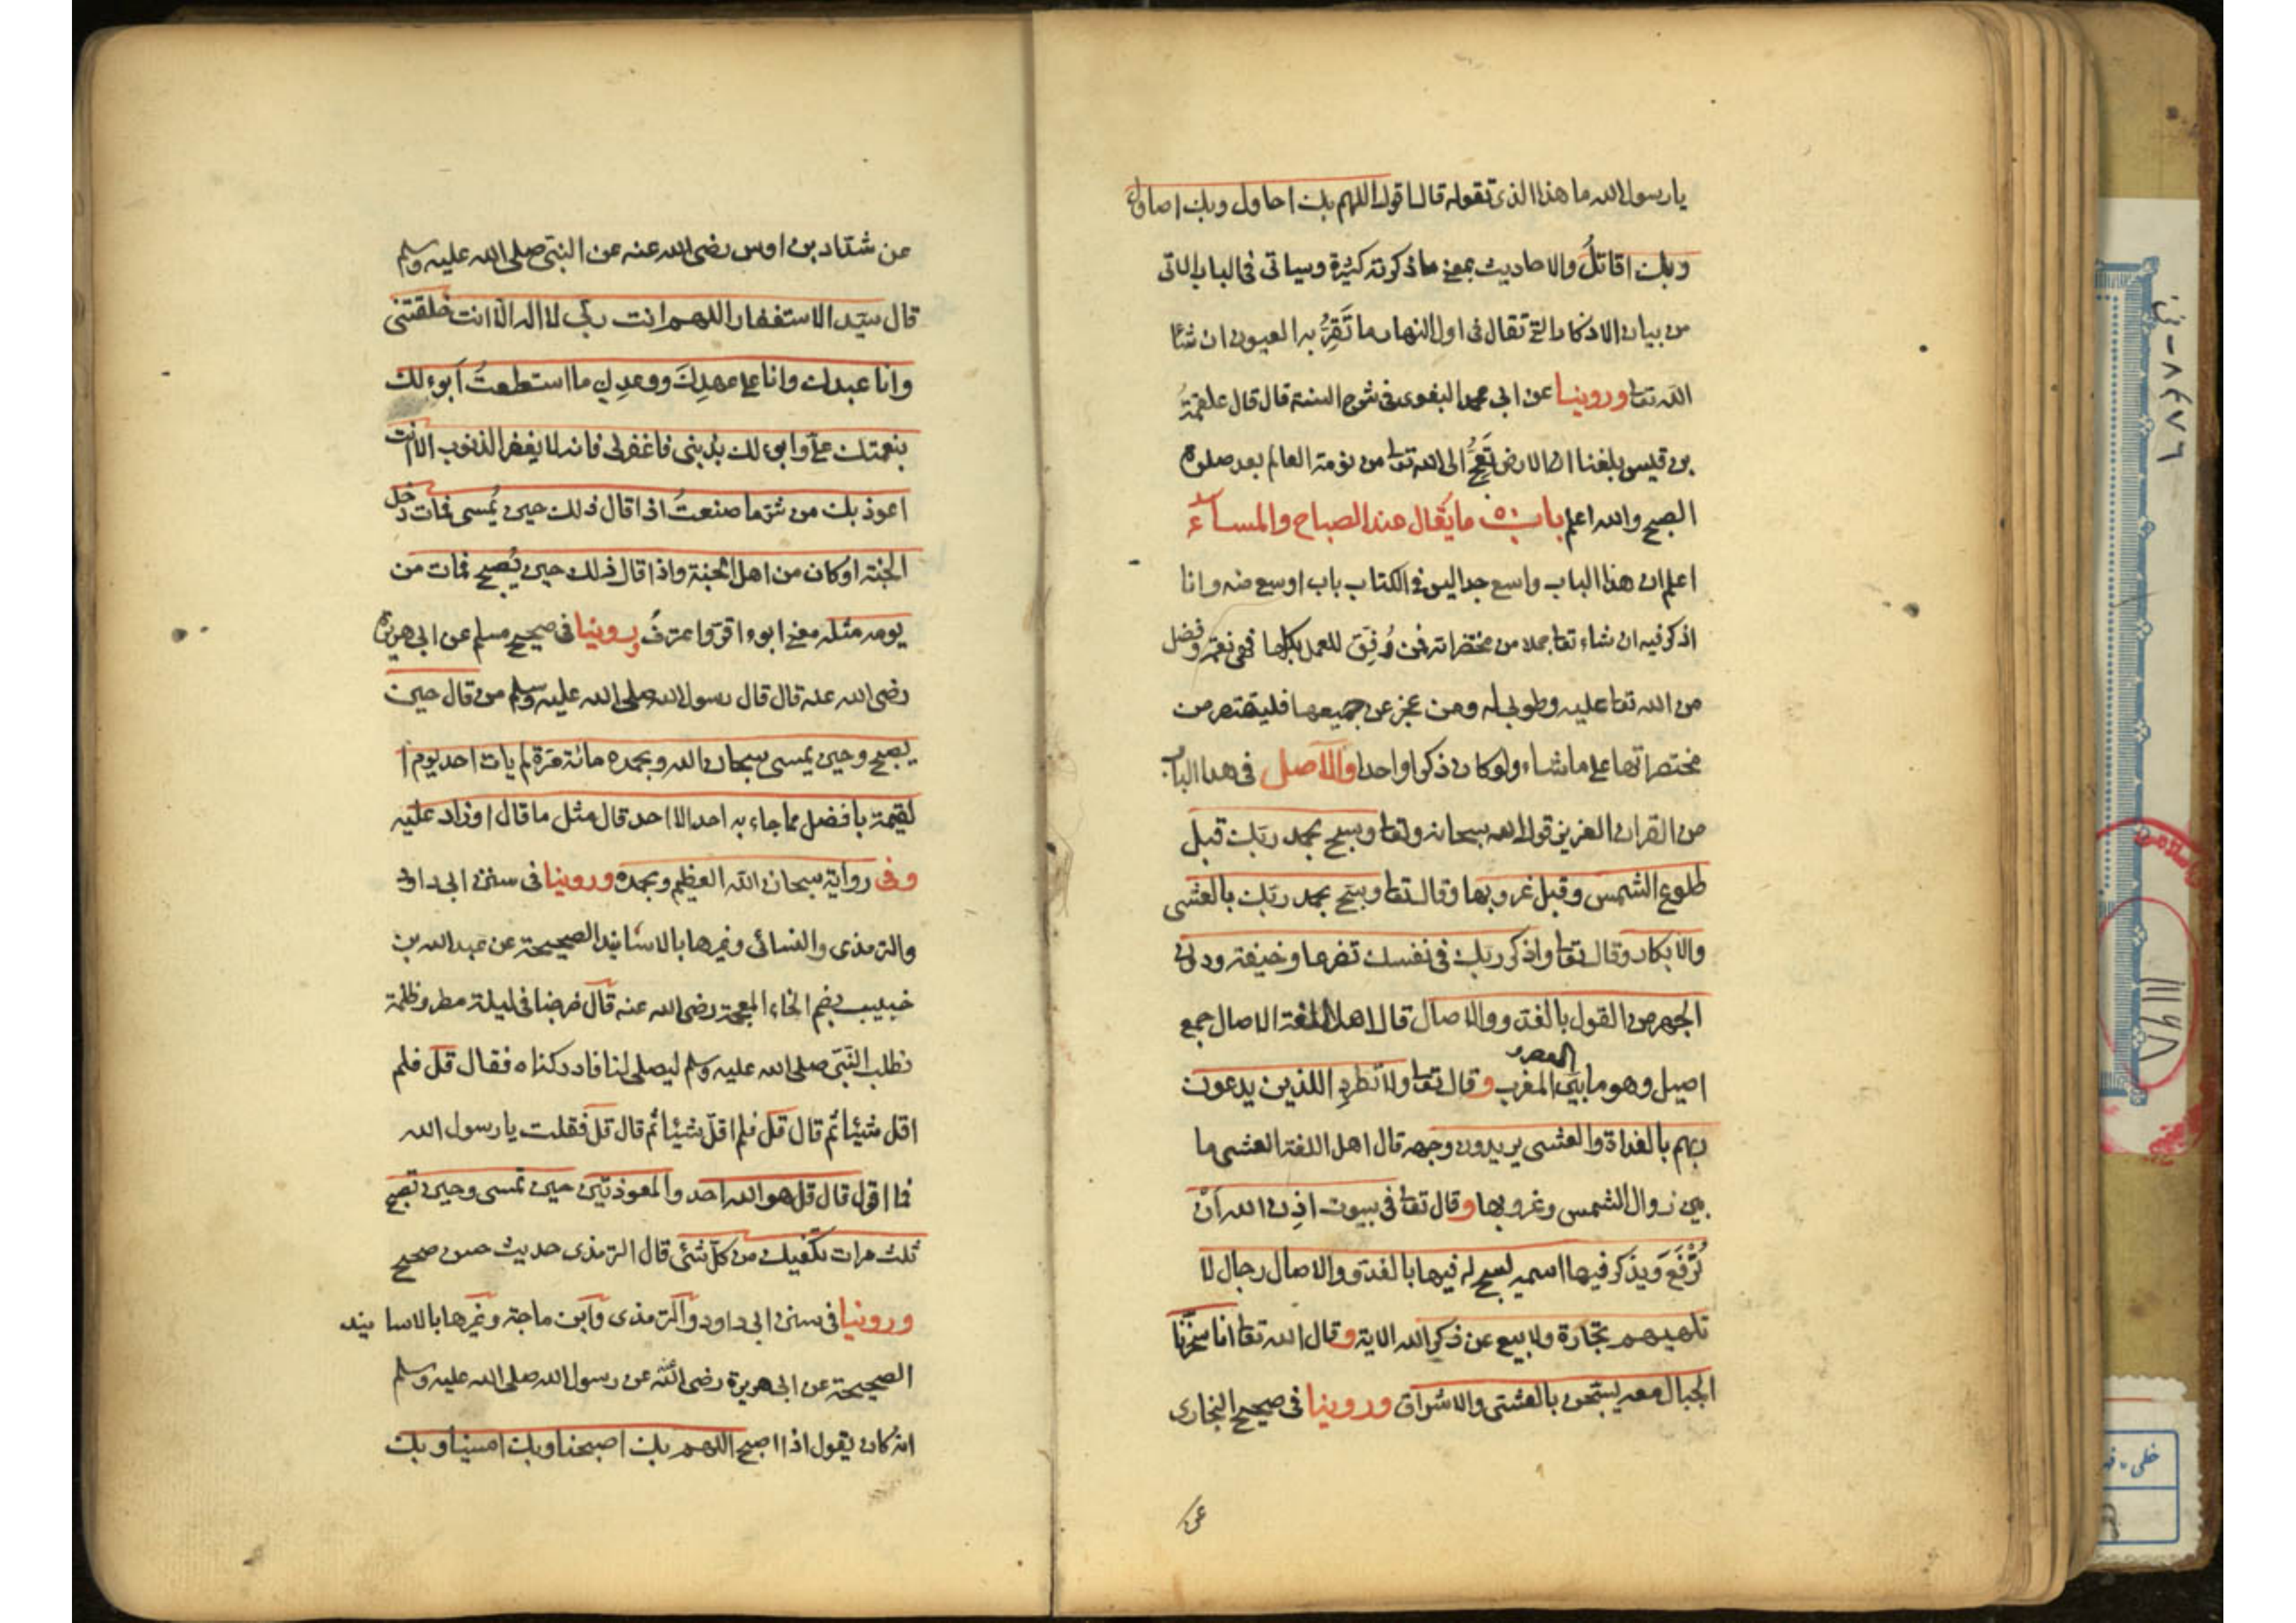 يا رسول الله ما هذا الذى تقوله قال اقول اللهم بك احاول وبك اصاول
وبك اقاتلُ والاحاديث بمعنى ما ذكرته كثيرة وسياتى فى الباب الاتى
من بيان الاذكار التى تقال فى اول النهار ما تَقِرُّ به العيون ان شا
الله تعا وروينا عن ابى محمد البغوى فى شرح السنة قال قال علقمةُ
بن قيس بلغنا ان الارض تَعِجُّ الى الله تعا من نومة العالم بعد صلوة
الصبح والله اعلم باب ما يقال عند الصباح والمساء
اعلم ان هذا الباب واسع جدا ليس فى الكتاب باب اوسع منه وانا
اذكر فيه ان شاء تعا جملا من مختصراته فمن وُفِّقَ للعمل بكلها فهى نعمة وفضل
من الله تعا عليه وطوبى له ومن عجز عن جميعها فليقتصر من
مختصراتها على ما شاء ولو كان ذكرا واحدا والاصل فى هذا الباب
من القران العزيز قول الله سبحانه وتعا وسبح بحمد ربك قبل
طلوع الشمس وقبل غروبها وقال تعا وسبح بحمد ربك بالعشى
والابكار وقال تعا واذكر ربك فى نفسك تضرعا وخيفة ودون
الجهر من القول بالغدو والاصال قال اهل اللغة الاصال جمع
العصر
اصيل وهو ما بين المغرب وقال تعا ولا تطرد اللذين يدعون
ربهم بالغداة والعشى يريدون وجهه قال اهل اللغة العشى ما
بين زوال الشمس وغروبها وقال تعا فى بيوت اذن الله اَنْ
تُرْفَعَ وَيذكر فيها اسمه يسبح له فيها بالغدو والاصال رجال لا
تلهيهم تجارة ولا بيع عن ذكر الله الاية وقال الله تعا انا سخرنا
الجبال معه يسبحن بالعشى والاشراق وروينا فى صحيح البخارى
عن
عن شداد بن اوس رضى الله عنه عن النبى صلى الله عليه وسلم
قال سيد الاستغفار اللهم انت ربى لا اله الا انت خلقتنى
وانا عبدك وانا على عهدِكَ ووعدِك ما استطعتُ اَبوء لك
بنعمتك علىّ وابوء لك بذنبى فاغفرلى فانه لا يغفر الذنوب الا انت
اعوذ بك من شر ما صنعتُ اذا قال ذلك حين يُمسى فمات دخل
الجنة او كان من اهل الجنة واذا قال ذلك حين يُصبح فمات من
يومه مثله معنى ابوء اقرّ واعترفُ وروينا فى صحيح مسلم عن ابى هريرة
رضى الله عنه قال قال رسول الله صلى الله عليه وسلم من قال حين
يصبح وحين يمسى سبحان الله وبحمده مائة مرّة لم يات احد يوم ا
لقيمة بافضل مما جاء به احد الا احد قال مثل ما قال او زاد عليه
وفى رواية سبحان الله العظيم وبحمده وروينا فى سنن ابى داود
والترمذى والنسائى وغيرها بالاسانيد الصحيحة عن عبد الله بن
خبيب بضم الخاء المعجمة رضى الله عنه قال خرجنا فى ليلة مطر وظلمة
نطلب النّبى صلى الله عليه وسلم ليصلى لنا فادركناه فقال قل فلم
اقل شيئا ثم قال قل فلم اقلّ شيئا ثم قال قل فقلت يا رسول الله
ما اقول قال قل هو الله احد والمعوذتين حين تمسى وحين تصبح
ثلث مرات تكفيك من كلّ شئ قال الترمذى حديث حسن صحيح
وروينا فى سنن ابى داود والترمذى وابن ماجة وغيرها بالاسا نيد
الصحيحة عن ابى هريرة رضى الله عنه عن رسول الله صلى الله عليه وسلم
انه كان يقول اذا اصبح اللهم بك اصبحنا وبك امسينا وبك